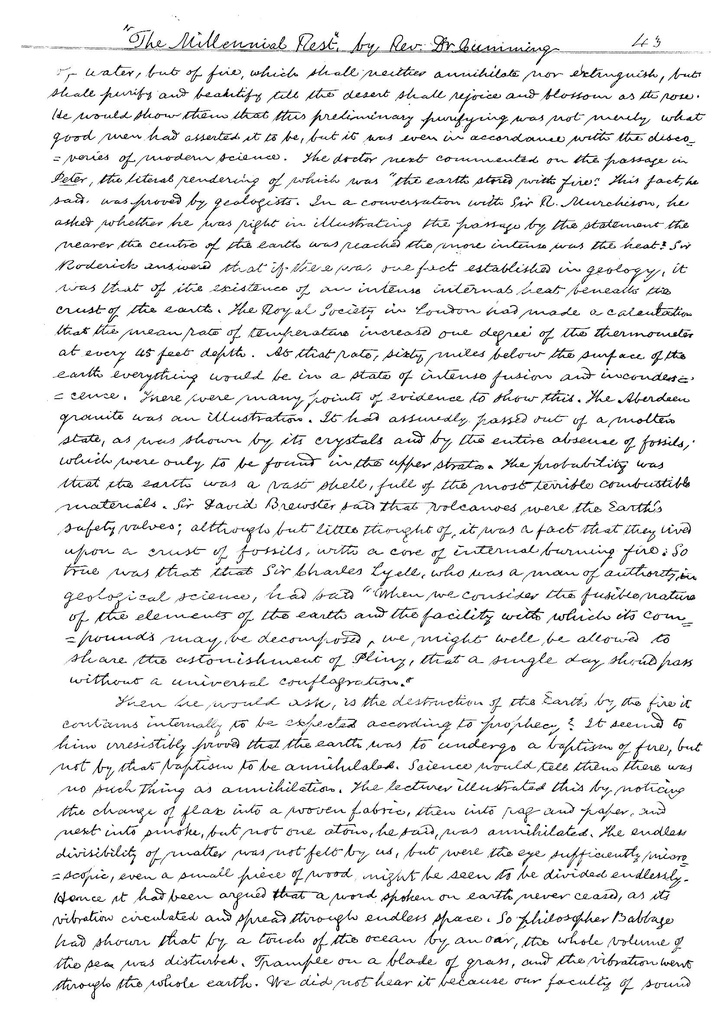 "The Millennial Rest", by Rev. Dr Cumming 43
of water, but of fire, which shall neither annihilate nor extinguish, but
shall purify and beautify till the desert shall rejoice and blossom as the rose.
He would show them that this preliminary purifying was not merely what
good men had asserted it to be, but it was even in accordance with the disco-
=veries of modern science. The doctor next commented on the passage in
Peter, the literal rendering of which was "the earth stored with fire". This fact, he
said, was proved by geologists. In a conversation with Sir R. Murchison, he
asked whether he was right in illustrating the passage by the statement the
nearer the centre of the earth was reached the more intense was the heat? Sir
Roderick answered that if there was one fact established in geology, it
was that of the existence of an intense internal heat beneath the
crust of the earth. The Royal Society in London had made a calculation
that the mean rate of temperature increased one degree of the thermometer
at every 45 feet depth. At that rate, sixty miles below the surface of the
earth everything would be in a state of intense fusion and incandes=
=cence. There were many points of evidence to show this. The Aberdeen
granite was an illustration. It had assuredly passed out of a molten
state, as was shown by its crystals and by the entire absense of fossils,
which were only to be found in the upper strata. The probability was
that the earth was a vast shell, full of the most terrible combustible
materials. Sir David Brewster said that volcanoes were the Earth's
safety valves; although but little thought of, it was a fact that they lived
upon a crust of fossils, with a core of internal burning fire. So
true was that that Sir Charles Lyell, who was a man of authority in
geological science, had said "When we consider the fusible nature
of the elements of the earth and the facility with which its com=
=pounds may be decomposed, we might well be allowed to
share the astonishment of Pliny, that a single day should pass
without a universal conflagration."
Then he would ask, is the destruction of the Earth by the fire it
contains internally to be expected according to prophecy? It seemed to
him irresistibly proved that the earth was to undergo a baptism of fire, but
not by that baptism to be annihilated. Science would tell them there was
no such thing as annihilation. The lecturer illustrated this by noticing
the change of flax into a woven fabric, then into rag and paper, and
next into smoke, but not one atom, he said, was annihilated. The endless
divisibility of matter was not felt by us, but were the eye sufficiently micro=
=scopic, even a small piece of wood might be seen to be divided endlessly.
Hence it had been argued that a word spoken on earth never ceased, as its
vibration circulated and spread through endless space. So philosopher Babbage
had shown that by a touch of the ocean by an oar, the whole volume of
the sea was disturbed. Trample on a blade of grass, and the vibration went
through the whole earth. We did not hear it because our faculty of sound